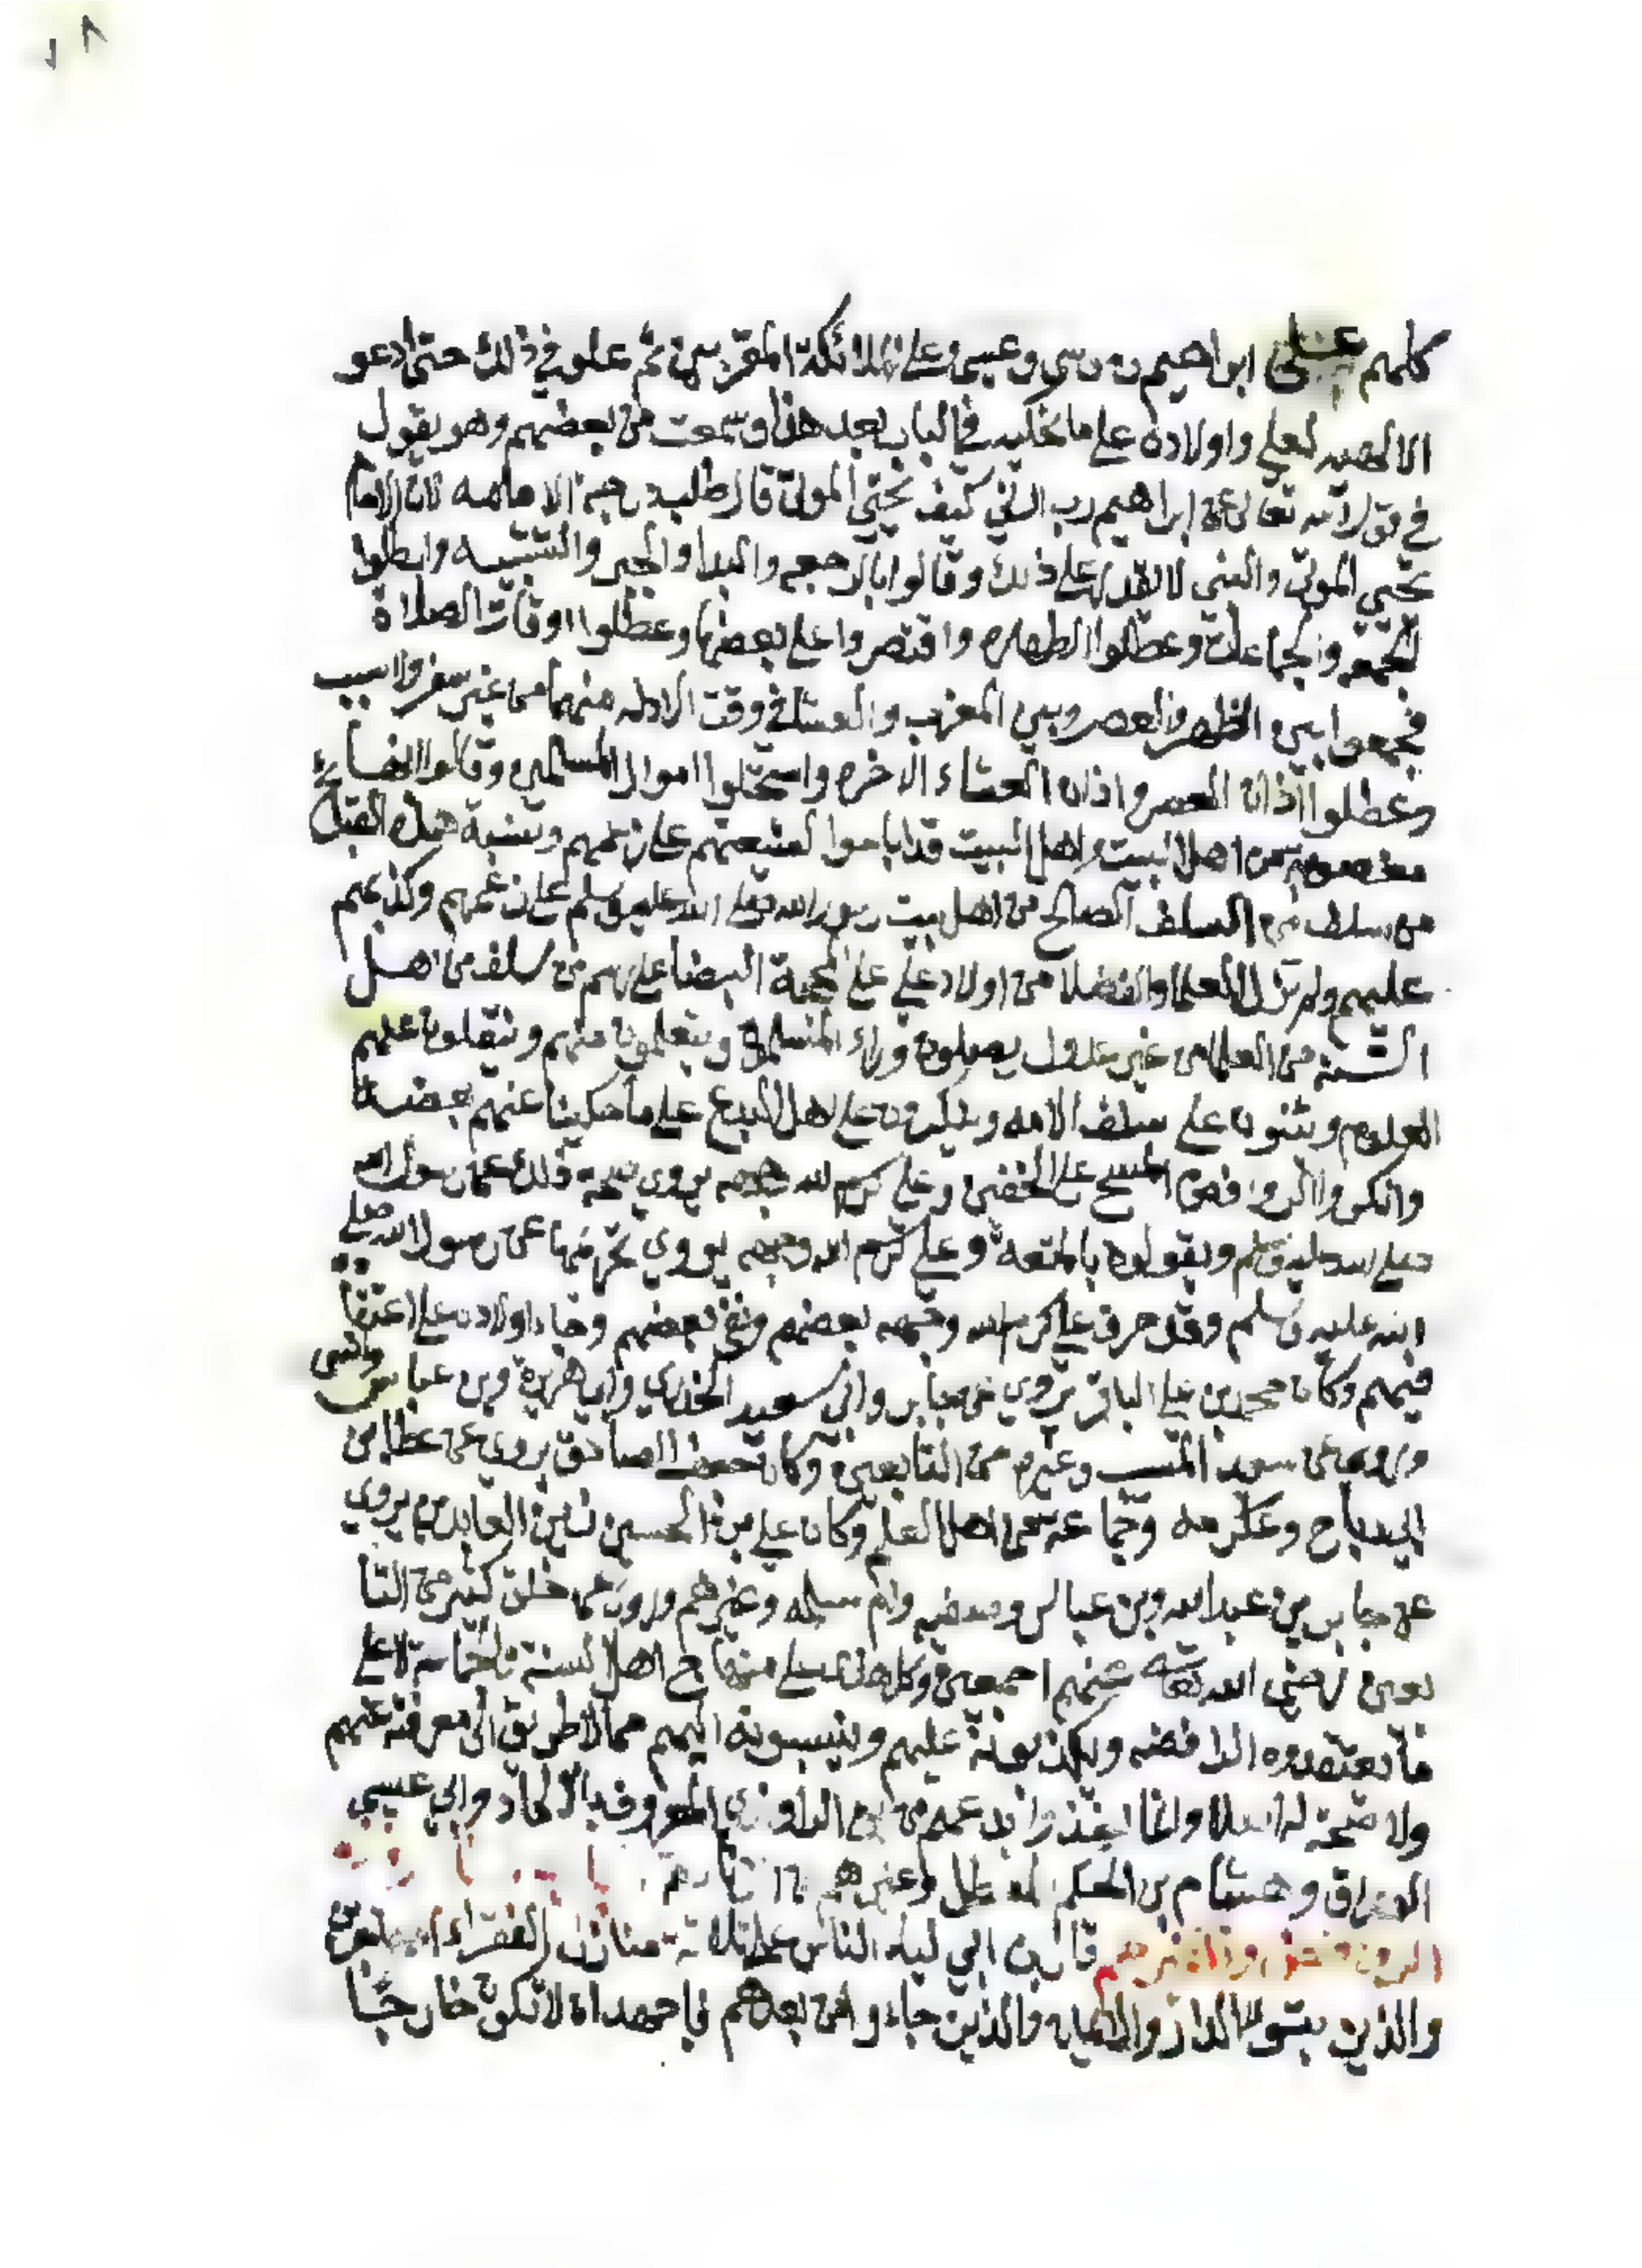 كلهم على ابراهيم وموسى وعيسى وعلى الملائكة المقربين ثم غلو في ذلك حتى ادعو
الالهيه لعلي واولاده على ما نحكيه في الباب بعد هذا وسمعت من بعضهم وهو يقول
في قول الله تعالى عن ابراهيم رب ارني كيف تحيي الموتى قال طلب درجة الامامه لان الامام
يحيي الموتى والنبي لا يقدر على ذلك وقالوا بالرجعه والبدا والجبر والتشبيه وابطلوا
الجمعه والجماعات وعطلوا الطهاره واقتصروا على بعضها وعطلوا اوقات الصلاة
فجمعوا بين الظهر والعصر وبين المغرب والعشا في وقت الاوله منهما من غير سفر ولا سبب
وعطلوا اذان العصر واذان العشاء الاخره واستحلوا اموال المسلمين وقالوا
اهل البيت واهل البيت قد اباحوا لشيعتهم على زعمهم ونسبة هذه القبائح
من سلف من السلف الصالح من اهل بيت رسول الله صلى الله عليه وسلم على زعمهم وكذبهم
عليهم ولم تزل العلما والفضلا من اولاد علي على المحبة البيضا على رسم من سلف من اهل
السنة من العلما من غير عدول يصلون وراء المسلمين ويتعلمون منهم وينقلون عنهم
العلوم ويثنون على سلف الامه وينكرون على اهل البدع على ما حكينا عنهم بعضه
وانكروا الروافض المسح على الخفين وعلي كرم الله وجهه يروي صحة ذلك عن رسول الله
صلى الله عليه وسلم ويقولون بالمتعه وعلي كرم الله وجهه يروي تحريمها عن رسول الله صلى
الله عليه وسلم وقد حرق علي كرم الله وجهه بعضهم ونفى بعضهم وجاء اولاده على اعتقا
فيهم وكان محمد بن علي الباقر يروي عن جابر وابي سعيد الخدري وابي هريرة وبن عباس وانس
ويروي عن سعيد المسيب وغيره من التابعين وكان جعفر الصادق يروي عن عطا بن
ابي رباح وعكرمه وجماعة من اهل العلم وكان علي بن الحسين زين العابدين يروي
عن جابر بن عبد الله وبن عباس وصفيه وام سلمه وغيرهم وروى عن خلق كثير من التا
بعين رضي الله تعالى عنهم اجمعين وكل هذا على منهاج اهل السنة والجماعة لا على
ما يعتقدوه الرافضه ويكذبونه عليهم وينسبونه اليهم مما لا طريق الى معرفته عنهم
ولا صحة له اصلا وانما اخذوا بدعهم من بن الراوندي المعروف بالالحاد وابي عيسى
الوراق وهشام بن الحكم وغيرهم
قال بن ابي ليلى الناس على ثلاثة منازل الفقراء المهاجرين
والذين تبوؤا الدار والايمان والذين جاءوا من بعدهم فاجهد ان لا تكون خارجا